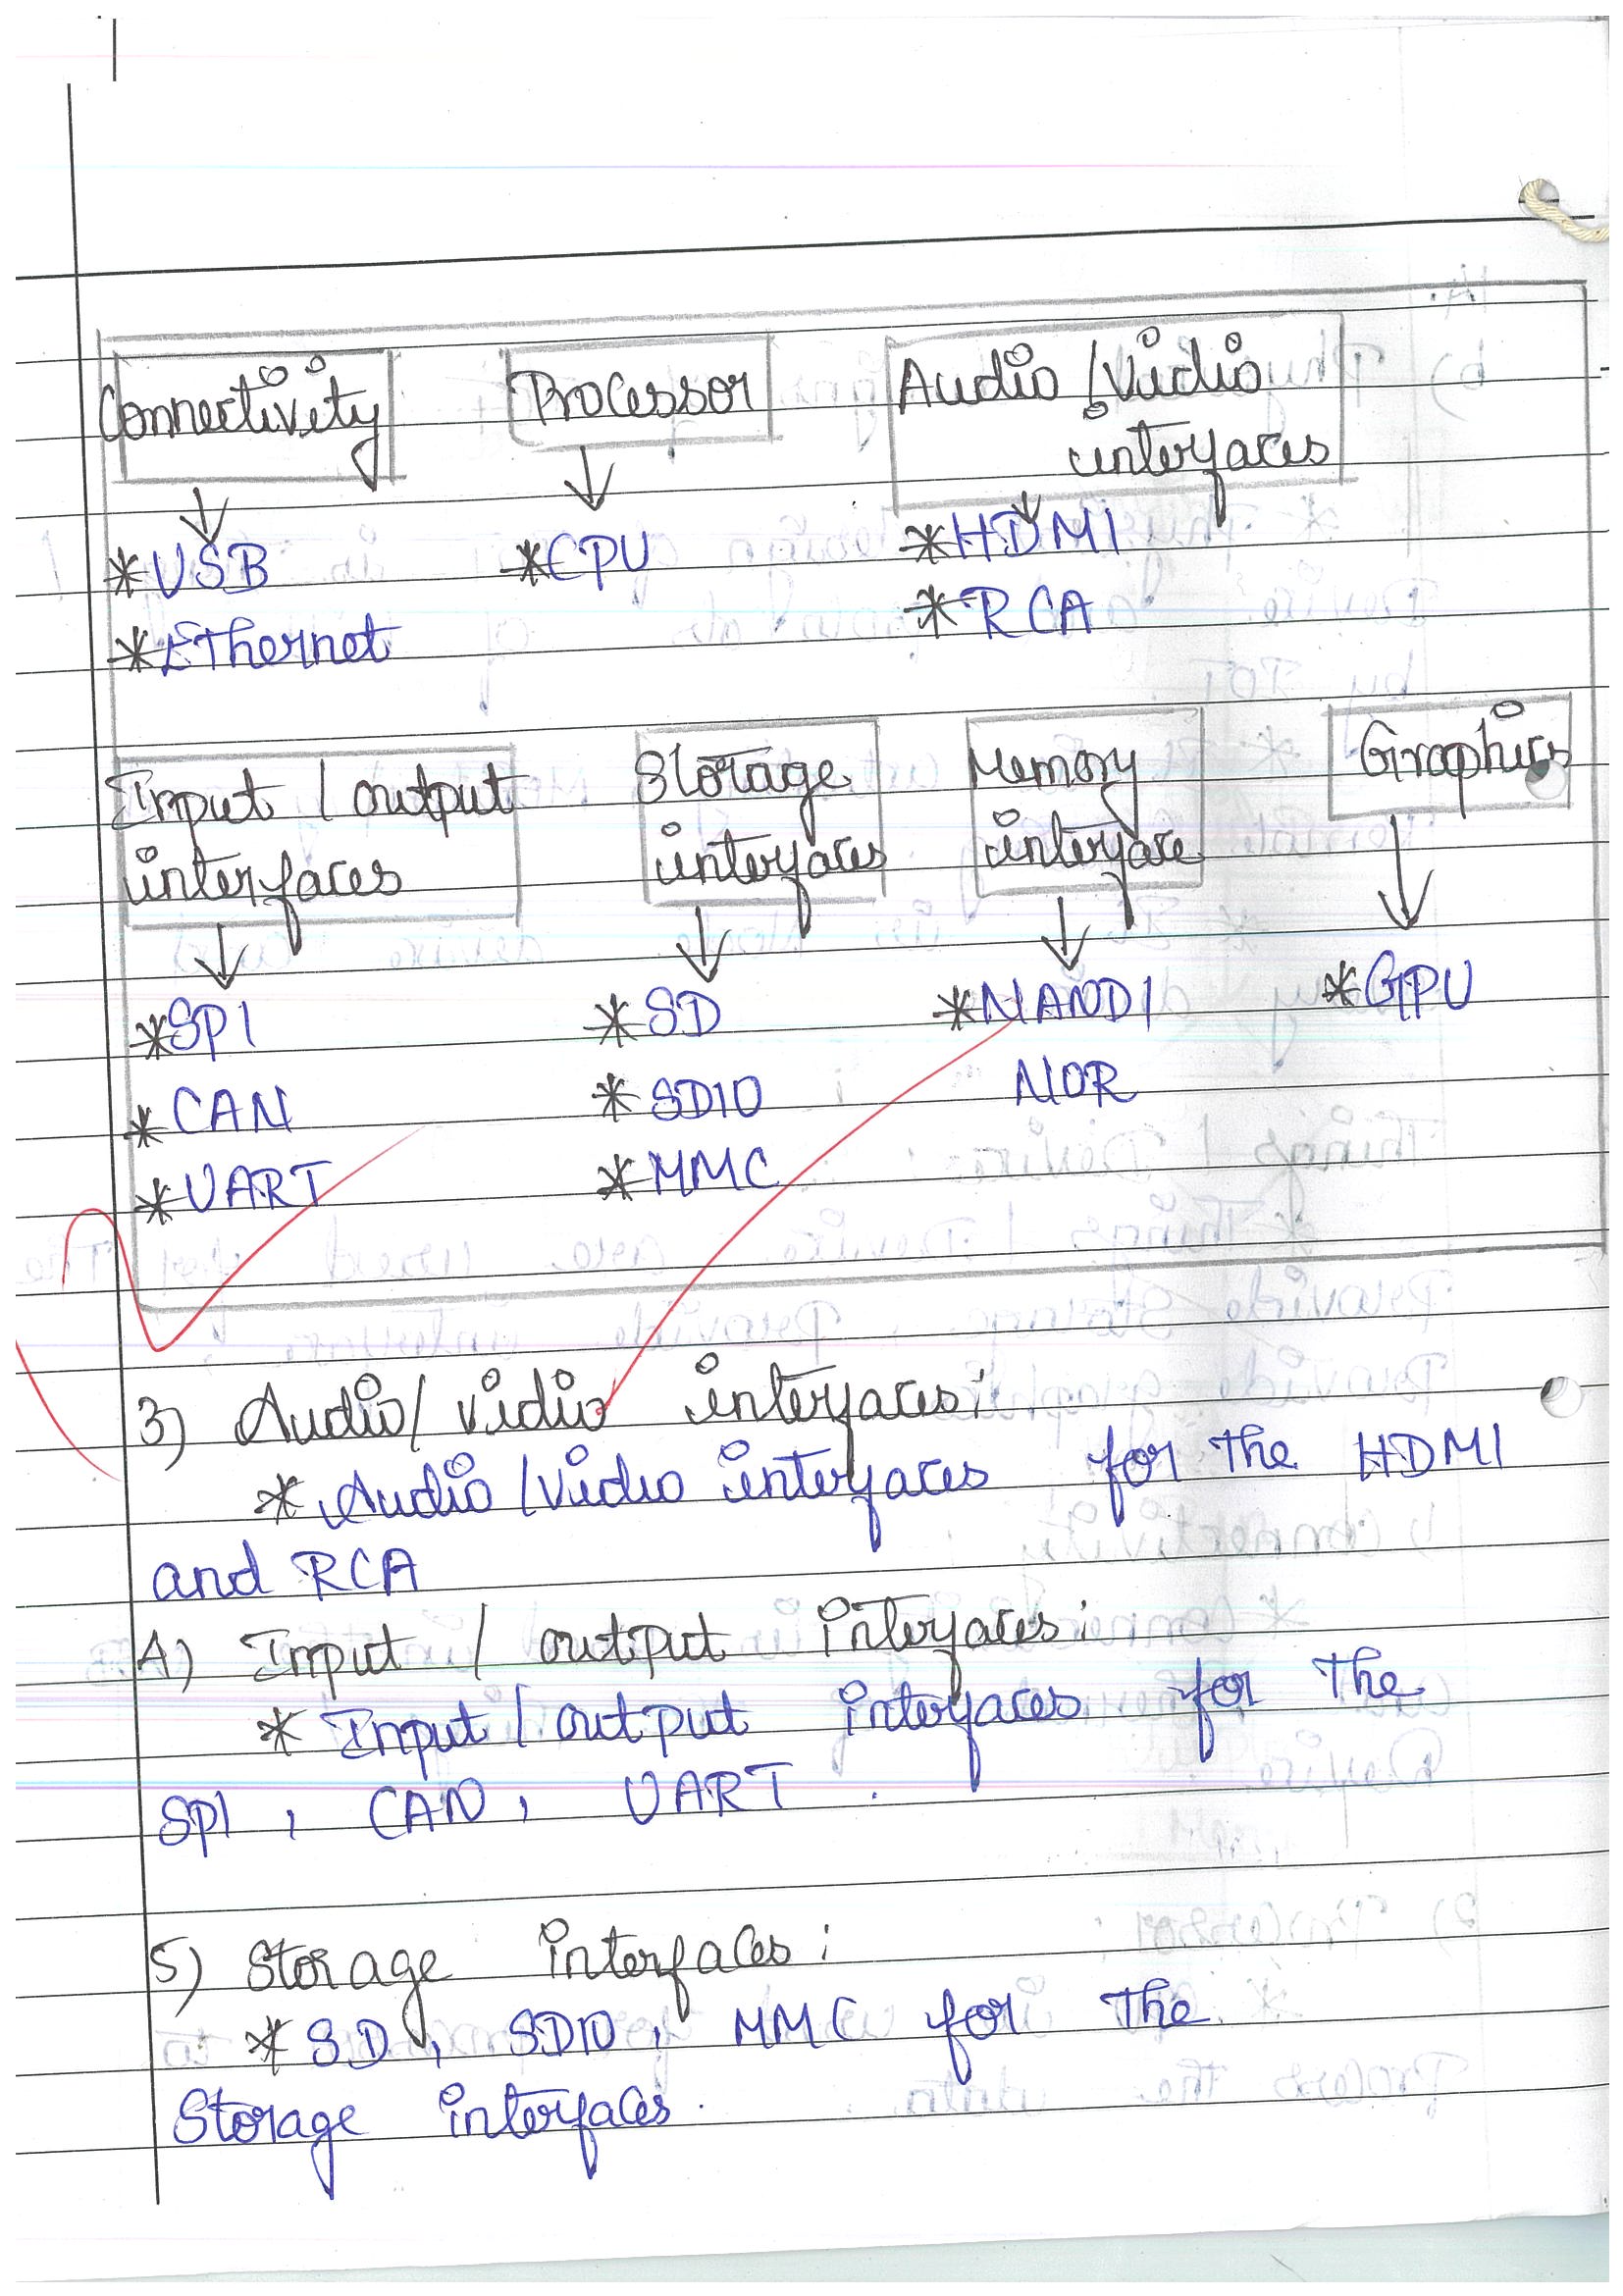 Connectivity Processor Audio / Vidio
interfaces
*USB *CPU *HDMI
*Ethernet *RCA
Input / output Storage Memory Graphics
interfaces interfaces interface
*SPI *SD *NAND/ *GPU
*CAN *SDIO NOR
*UART *MMC
3) Audio/ vidio interfaces:
*Audio /Vidio interfaces for the HDMI
and RCA
4) Input / output interfaces:
* Input / output interfaces for the
SPI, CAN, UART.
5) Storage interfaces:
*SD, SDIO, MMC for the
Storage interfaces.